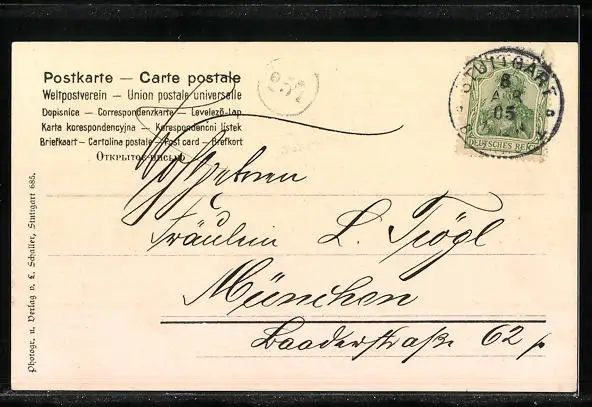 Postkarte — Carte postale
Weltpostverein — Union postale universelle
Dopisnice — Correspondenzkarte — Levelező-Lap
Karta korespondencyjna — Korespondenční lístek
Briefkaart — Cartolina postale — Post card — Brefkort
Открытое письмо
STUTTGART
8
APR
05
DEUTSCHES REICH
Wohlgeboren
Fräulein L. Trögl
München
Baaderstraße 62
Photogr. u. Verlag v. C. Schaller, Stuttgart 685.